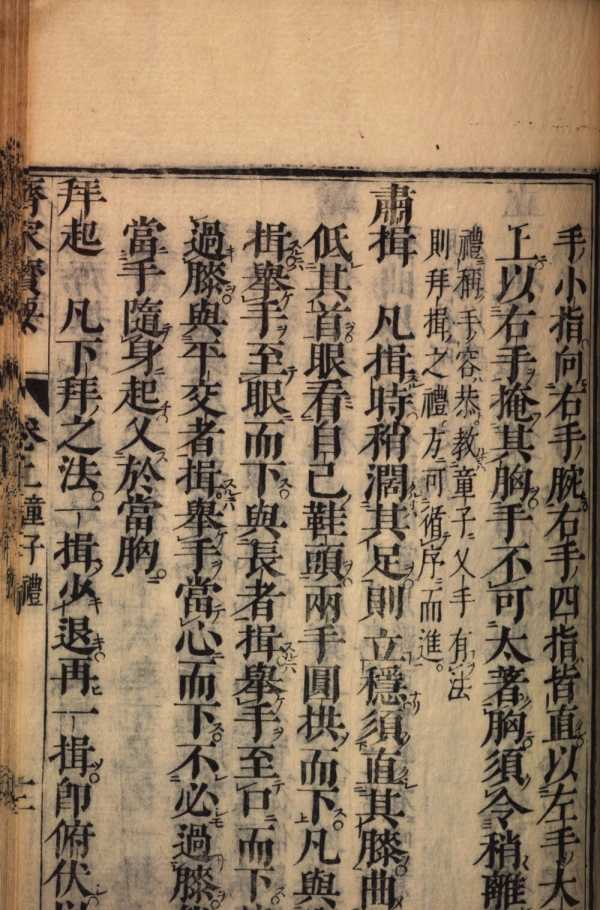 手小指向右手腕右手四指皆直以左手大
上以右手掩其胸手不可太著胸須令稍離
禮稱手容恭教童子叉手有法
則拜揖之禮方可循序而進。
肅揖　凡揖時稍濶其足則立穩須直其膝曲
低其首眼看自己鞋頭兩手圓拱而下凡與
揖擧手至眼而下與長者揖擧手至口而下
過膝與平交者揖擧手當心而下不必過膝
當手隨身起叉於當胸。
拜起　凡下拜之法。一揖少退再一揖卽俯伏
齊家寶要　卷上童子禮